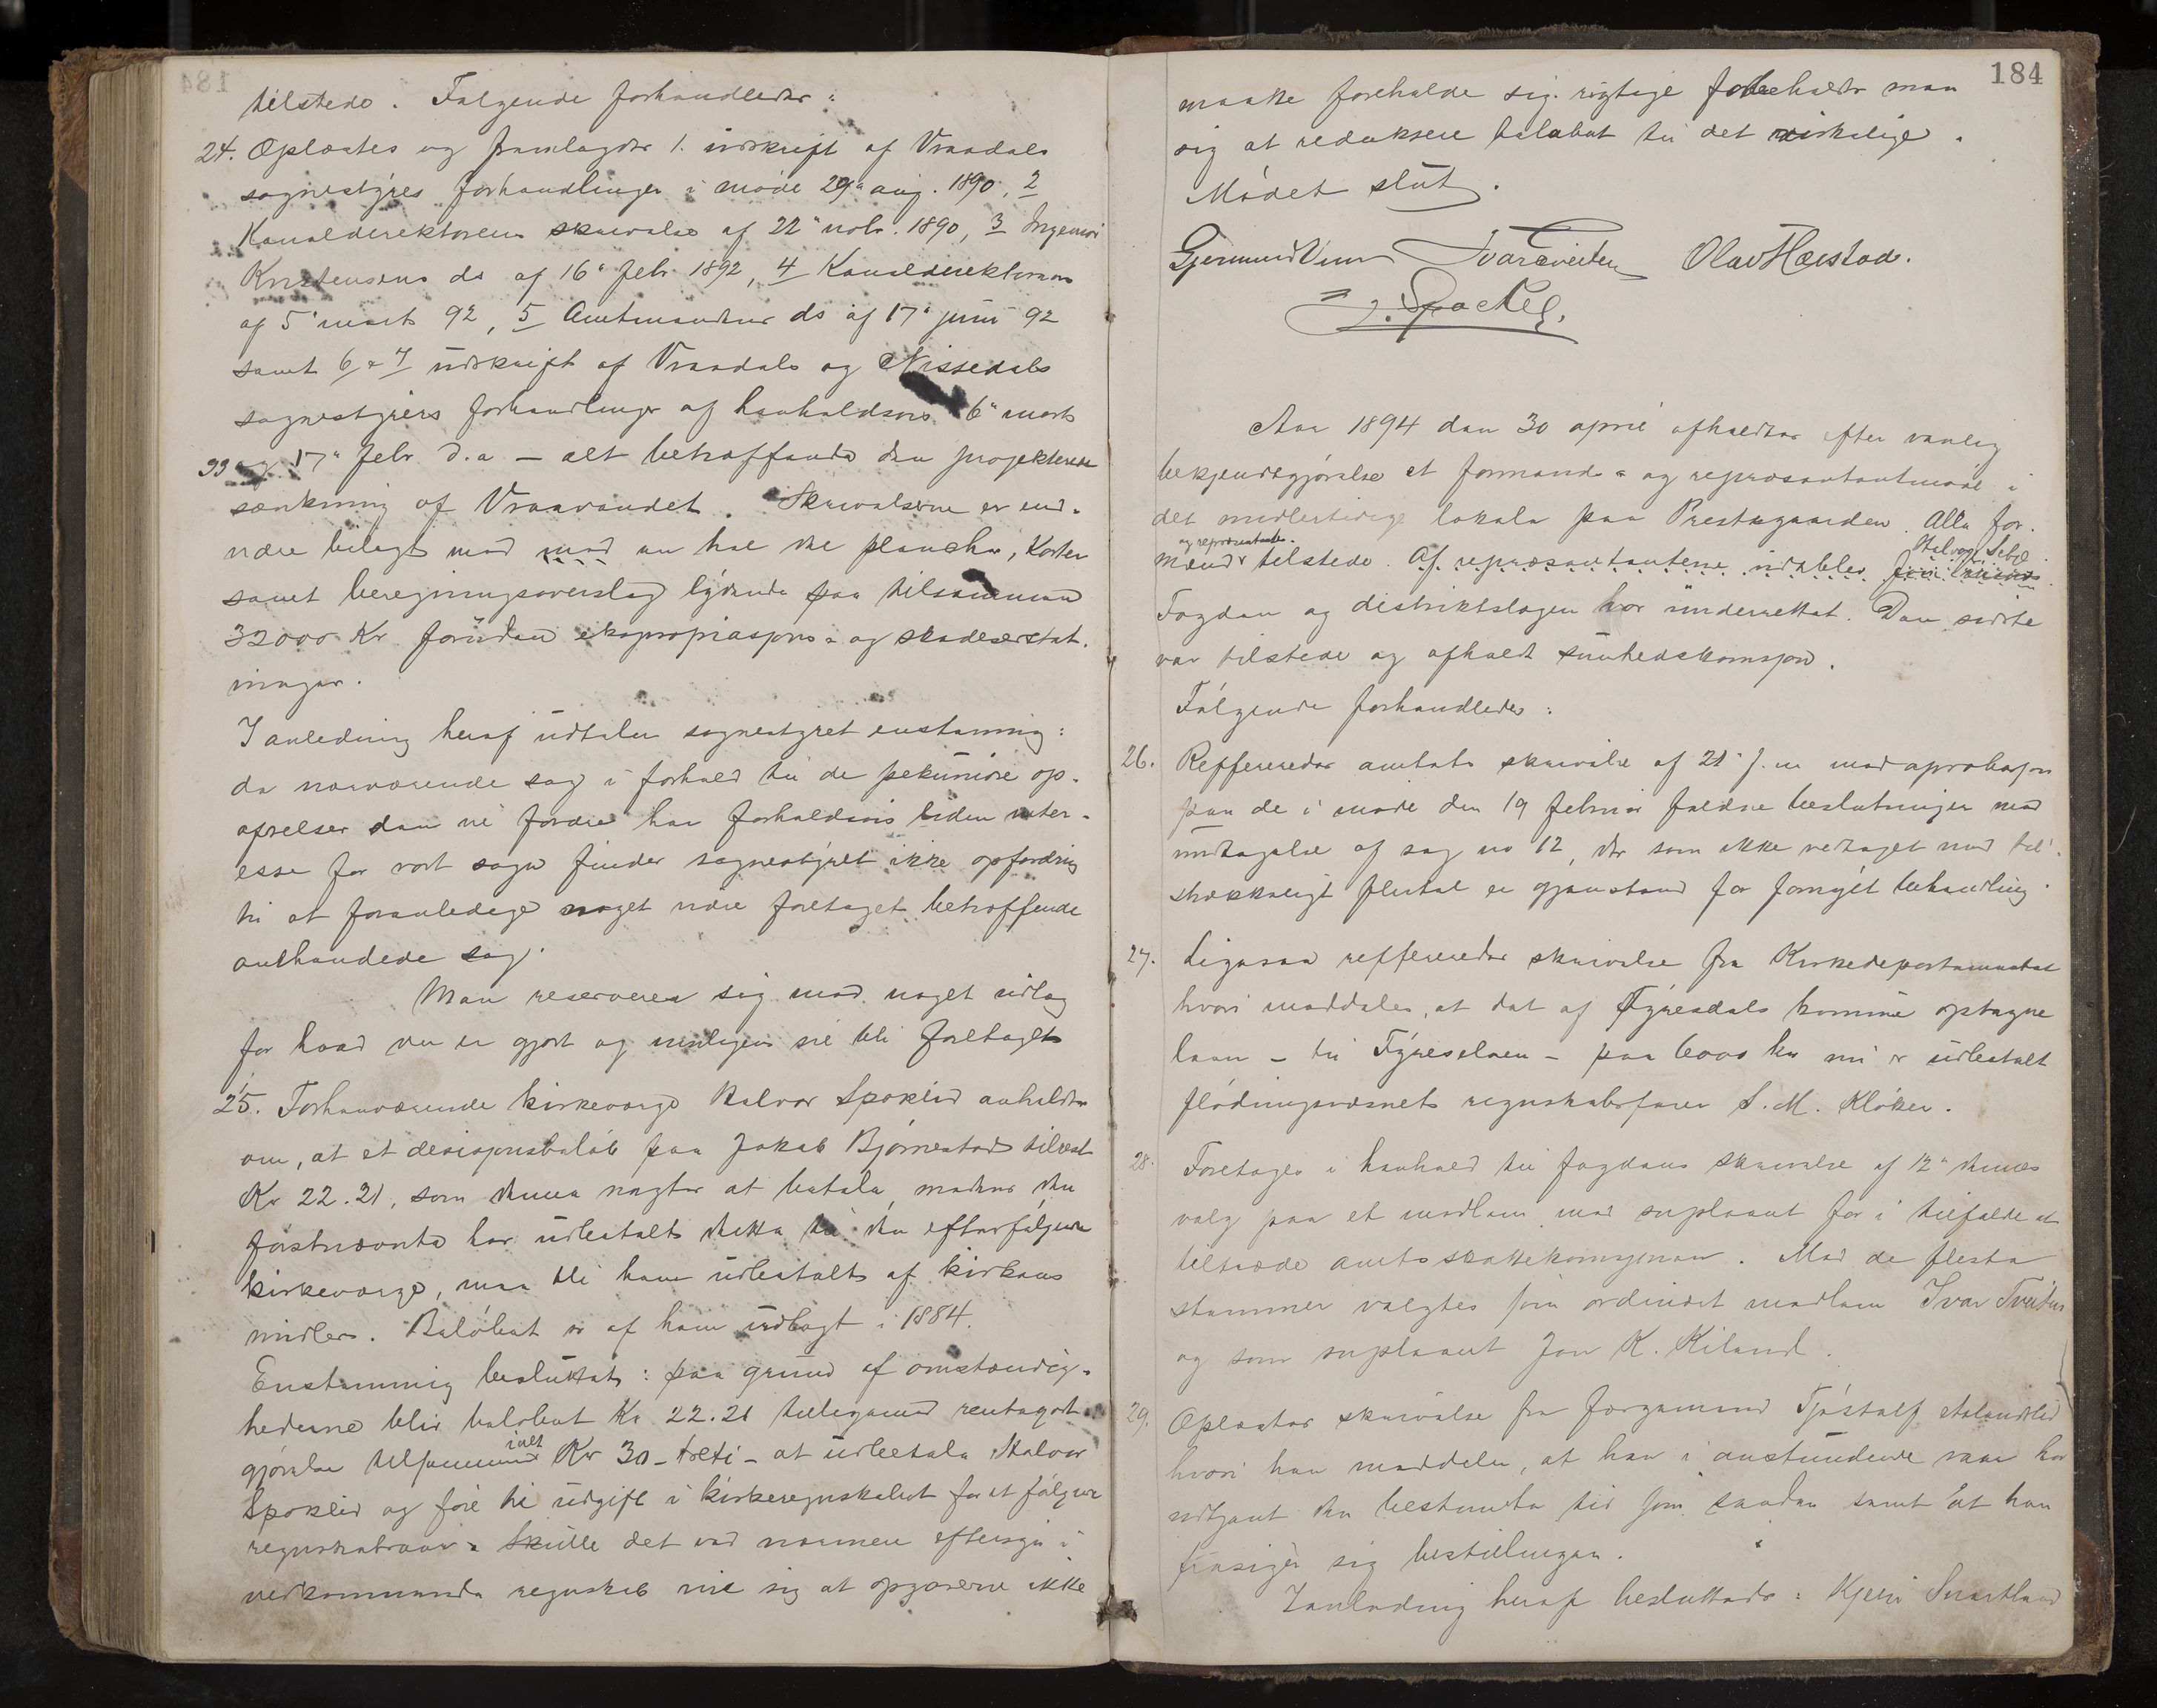 tilstede. Følgende forhandledes:
24. Oplæstes og framlagdes 1. utskrift af Vraadals
sognestyres forhandlinger i møde 29de aug. 1890, 2
Kanaldirektørens skrivelse af 22de nobr. 1890, 3 Ingeniør
Kristensens ds af 16de febr 1892, 4 Kanaldirektørens
af 5 marts 92, 5 Amtmandens ds af 17de juni 92
samt 6 & 7 udskrift af Vraadals og Nissedals
sognestyrers forhandlinger af hanholdsvis 6te marts
93 og 17de febr d.a - alt betræffande den projekterede
sænkning af Vraavandet. Skrivelserne er end-
videre bilagt med med en hel del plancher, karter
samt beregningsoverslag lydende paa tilsammen
32000 Kr foruden ekspropriasjons- og skadeserstat-
ninger.
I anledning heraf udtaler sognestyret enstemmig:
da nærværende sag i forhold til de pekuniære op-
ofrelser den vil fordre har forholdsvis liden inter-
esse for vort sogn finder sognestyret ikke opfordring
til at foranledige noget videre foretaget betræffende
anthandede sag.
Man reserverer sig mod noget udlæg
for hvad der er gjort og muligens vil bli foretaget
25. Forhenværende kirkeværge Halvor Spokelid anholdt
om, at et desisjonsbeløb paa Jakob Bjørnestad tilrest
Kr 22.21, som denne nægter at betale medens den
førstnævnte har udbetalt dette til den efterfølgende
kirkeværge, maa bli ham udbetalt af kirkens
midler. Beløbet er af ham udlagt i 1884.
Enstemmig besluttet: paa grund af omstændig-
hederne blir beløbet Kr 22.21 tilligemed rentegodt-
gjørelse tilsammen ialt Kr 30 - treti - at udbetale Halvor
Spokelid og føre til udgift i kirkeregnskabet for et følgende
regnskabsaar - Skulle det ved nærmere eftersyn i
vedkommende regnskab vise sig at opgaverne ikke
184
maatte forholde sig rigtige forbeholdes man
sig at redusere beløbet til det virkelige.
Mødet slut.
Gjermund Vinn Ivar Tveiten Olav Hæstad.
J. Spockel.
Aar 1894 den 30 april afholdtes efter vanlig
bekjendtgjørelse et formands- og repræsentantmøde i
det midlertidige lokale paa Prestegaarden. Alle for-
og repræsentanter. Halvor
mænd tilstede. Af repræsentanterne udeblev
Fogden og distriktslægen har underrettet. Den sidste
var tilstede og afholdt sundhedskomisjon.
Følgende forhandledes:
26. Reffereredes amtets skrivelse af 21 f.m med aprobasjon
paa de i møde den 19 februar fældne beslutninger med
undtagelse af sag no 12, der som ikke vedtaget med til-
strækkeligt flertal er gjenstand for fornyet behandling.
27. Ligesaa reffereredes skrivelse fra Kirkedepartementet
hvori meddeles, at det af Fyresdals komune optagne
laan - til Fyreselven - paa 6000 kr nu er udbetalt
flødningsvæsnets regnskabsfører S. M. Kløker.
28. Foretoges i henhold til fogdens skrivelse af 12te dennes
valg paa et medlem med supleant for i tilfælde at
tiltræde amtsskattekomisjonen. Med de fleste
stemmer valgtes som ordinært medlem Ivar Tveiten
og som supleant Jon K. Kiland.
29. Oplæstes skrivelse fra fergemand Tjøstolf
hvori han meddeler, at han i anstundende vaar har
udtjent den bestemte tid som saadan samt at han
frasiger sig bestillingen.
I anledning heraf besluttedes: Kjetil Svartland